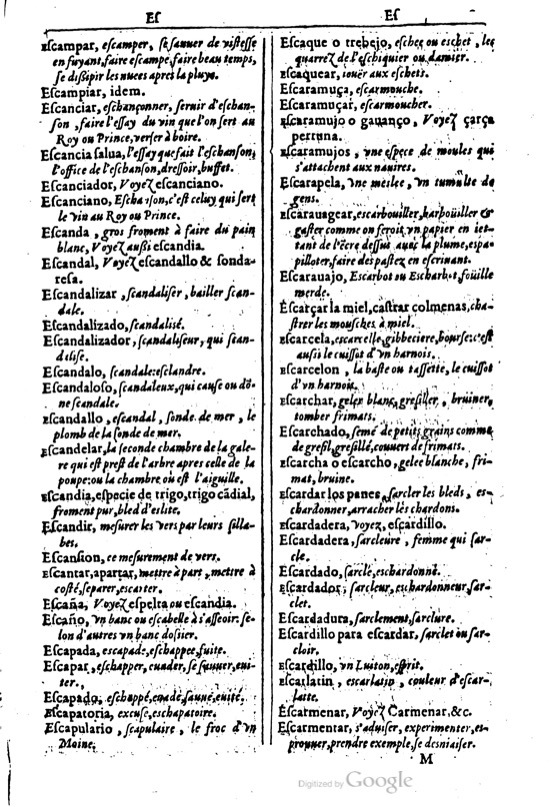 Eſ
Eſcampar, eſcamper, ſe ſauuer de viſteſſe
en fuyant, faire eſcampe, faire beau temps,
ſe diſſiper les nuees apres la pluye.
Eſcampiar, idem.
Eſcanciar, eſchançonner, ſeruir d'eſchan-
ſon, faire l'eſſay du vin que l'on ſert au
Roy ou Prince, verſer à boire.
Eſcancia ſalua, l'eſſay que fait l'eſchanſon,
l'office de l'eſchanſon, dreſſoir, buffet.
Eſcanciador, Voyez eſcanciano.
Eſcanciano, Eſchanſon, c'eſt celuy qui ſert
le vin au Roy ou Prince.
Eſcanda, gros froment à faire du pain
blanc, Voyez auſsi eſcandia.
Eſcandal, Voyez eſcandallo & ſonda-
reſa.
Eſcandalizar, ſcandaliſer, bailler ſcan-
dale.
Eſcandalizado, ſcandaliſé.
Eſcandalizador, ſcandaliſeur, qui ſcan-
daliſe.
Eſcandalo, ſcandale: eſclandre.
Eſcandaloſo, ſcandaleux, qui cauſe ou dō-
ne ſcandale.
Eſcandallo, eſcandal, ſonde de mer, le
plomb de la ſonde de mer.
Eſcandelar, la ſeconde chambre de la gale-
re qui eſt preſt de l'arbre apres celle de la
poupe: ou la chambre où eſt l'aiguille.
Eſcandia, eſpecie de trigo, trigo cādial,
froment pur, bled d'eslite.
Eſcandir, meſurer les vers par leurs ſilla-
bes.
Eſcanſion, ce meſurement de vers.
Eſcantar, apartar, mettre à part, mettre à
coſté, ſeparer, eſcarter.
Eſcaña, Voyez eſpelta ou eſcandia.
Eſcaño, vn banc ou eſcabelle à s'aſſeoir: ſe-
lon d'autres vn banc doſsier.
Eſcapada, eſcapade, eſchappee, fuite.
Eſcapar, eſchapper, euader, ſe ſauuer, eui-
ter.
Eſcapado, eſchappé, euadé, ſauué, euité.
Eſcapatoria, excuſe, eſchapatoire.
Eſcapulario, ſcapulaire, le froc d'vn
Moine.
Eſ
Eſcaque o trebejo, eſchec ou eschet, les
quarrez de l'eſchiquier ou damier.
Eſcaquear, iouër aux eſchets.
Eſcaramuça, eſcarmouche.
Eſcaramuçar, eſcarmoucher.
Eſcaramujo o gauanço, Voyez çarça
perruna.
Eſcaramujos, vne eſpece de moules qui
s'attachent aux nauires.
Eſcarapela, vne meslee, vn tumulte de
gens.
Eſcarauagear, eſcarbouiller, barboüiller &
gaſter comme on feroit vn papier en iet-
tant de l'ēcre deſſus auec la plume, eſpa-
pilloter, faire des paſtez en eſcriuant.
Eſcarauajo, Eſcarbot ou Eſcharbot, foüille
merde.
Eſcarçar la miel, caſtrar colmenas, cha-
ſtrer les mouſches à miel.
Eſcarcela, eſcarcelle, gibbeciere, bourſe: c'eſt
auſsi le cuiſſot d'vn harnois.
Eſcarcelon, la baſte ou taſſette, le cuiſſot
d'vn harnois.
Eſcarchar, gelex blanc, greſiller, bruiner,
tomber frimats.
Eſcarchado, ſemé de petits grains comme
de greſil, greſillé, couuert de frimats.
Eſcarcha o eſcarcho, gelee blanche, fri-
mat, bruine.
Eſcardar los panes, ſarcler les bleds, eſ-
chardonner, arracher les chardons.
Eſcardadera, voyez, eſcardillo.
Eſcardadera, ſarcleure, femme qui ſar-
cle.
Eſcardado, ſarclé, eschardonné.
Eſcardador, ſarcleur, eschardonneur, ſar-
clet.
Eſcardadura, ſarclement, ſarclure.
Eſcardillo para eſcardar, ſarclet ou ſar-
cloir.
Eſcardillo, vn Luiton, eſprit.
Eſcarlatin, eſcarlatin, couleur d'eſcar-
latte.
Eſcarmenar, Voyez Carmenar, &c.
Eſcarmentar, s'aduiſer, experimenter, eſ-
prouuer, prendre exemple, ſe desniaiſer.
M
Digitized by Google